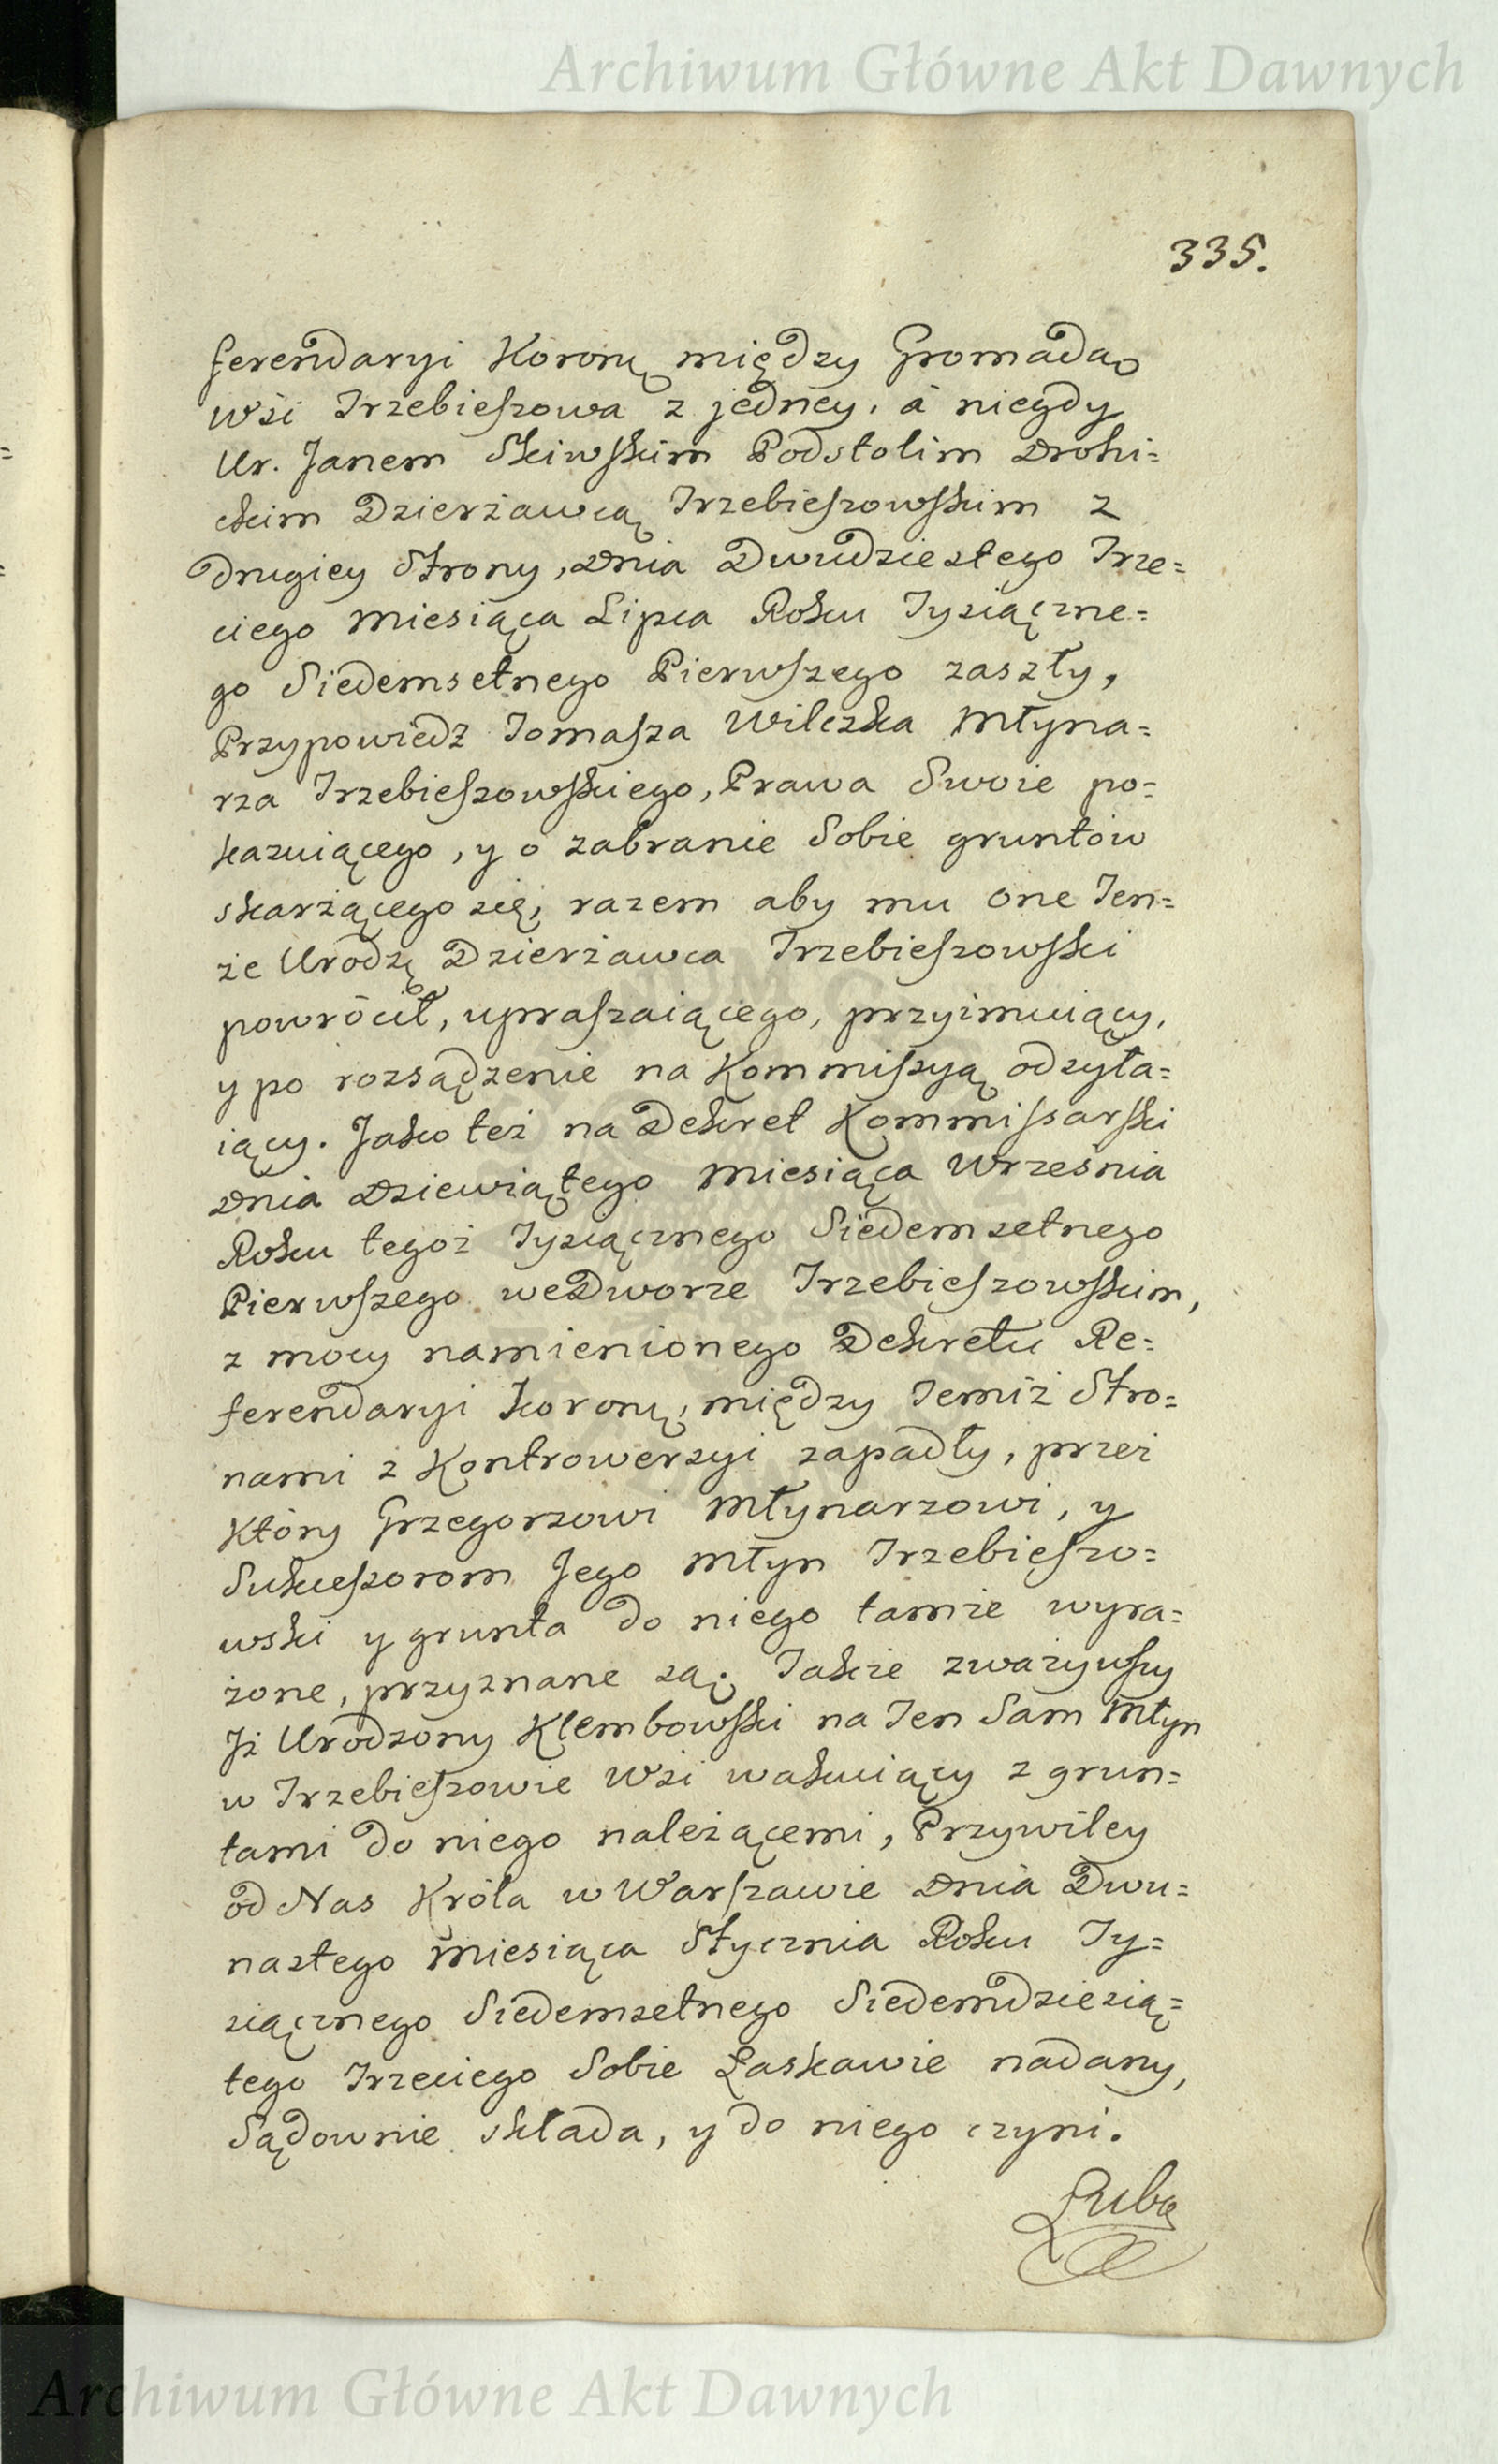 Archiwum Główne Akt Dawnych
335.
ferendaryi Koronę między Gromadą
Wsi Trzebieszowa z jedney, a niegdy
Ur. Janem Skiwskim Podstolim Drohi=
ckim Dzierżawcą Trzebieszowskim z
drugiey Strony, Dnia Dwudziestego Trze=
ciego Miesiąca Lipca Roku Tysiączne=
go Siedemsetnego Pierwszego zaszły,
Przypowiedz Tomasza Wilczka Młyna=
rza Trzebieszowskiego, Prawa Swoie po=
kazuiącego, y o zabranie Sobie gruntów
skarżącego się, razem aby mu one Ten=
że Urodzę Dzierżawca Trzebieszowski
powrócił, upraszaiącego, przyimuiący,
y po rozsądzenie na Kommiszyą odsyła=
iący. Jako też na Dekret Kommissarski
Dnia Dziewiątego Miesiąca Września
Roku tegoż Tysiącznego Siedemsetnego
Pierwszego we Dworze Trzebieszowskim,
z mocy namienionego Dekretu Re=
ferendaryi koronę, między Temiż Stro=
nami z Kontrowerzyi zapadły, przez
Który Grzegorzowi Młynarzowi, y
Sukceszorom Jego Młyn Trzebieszo=
wski y grunta do niego tamże wyra=
żone, przyznane są. Także zważywszy
Iż Urodzony Klembowski na Ten Sam Młyn
w Trzebieszowie Wsi wakuiący z grun=
tami do niego należącemi, Przywiley
od Nas Króla w Warszawie Dnia Dwu=
nastego Miesiąca Stycznia Roku Ty=
siącznego Siedemsetnego Siedemdziesią=
tego Trzeciego Sobie Łaskawie nadany,
Sądownie składa, y do niego czyni.
Luba
Archiwum Główne Akt Dawnych